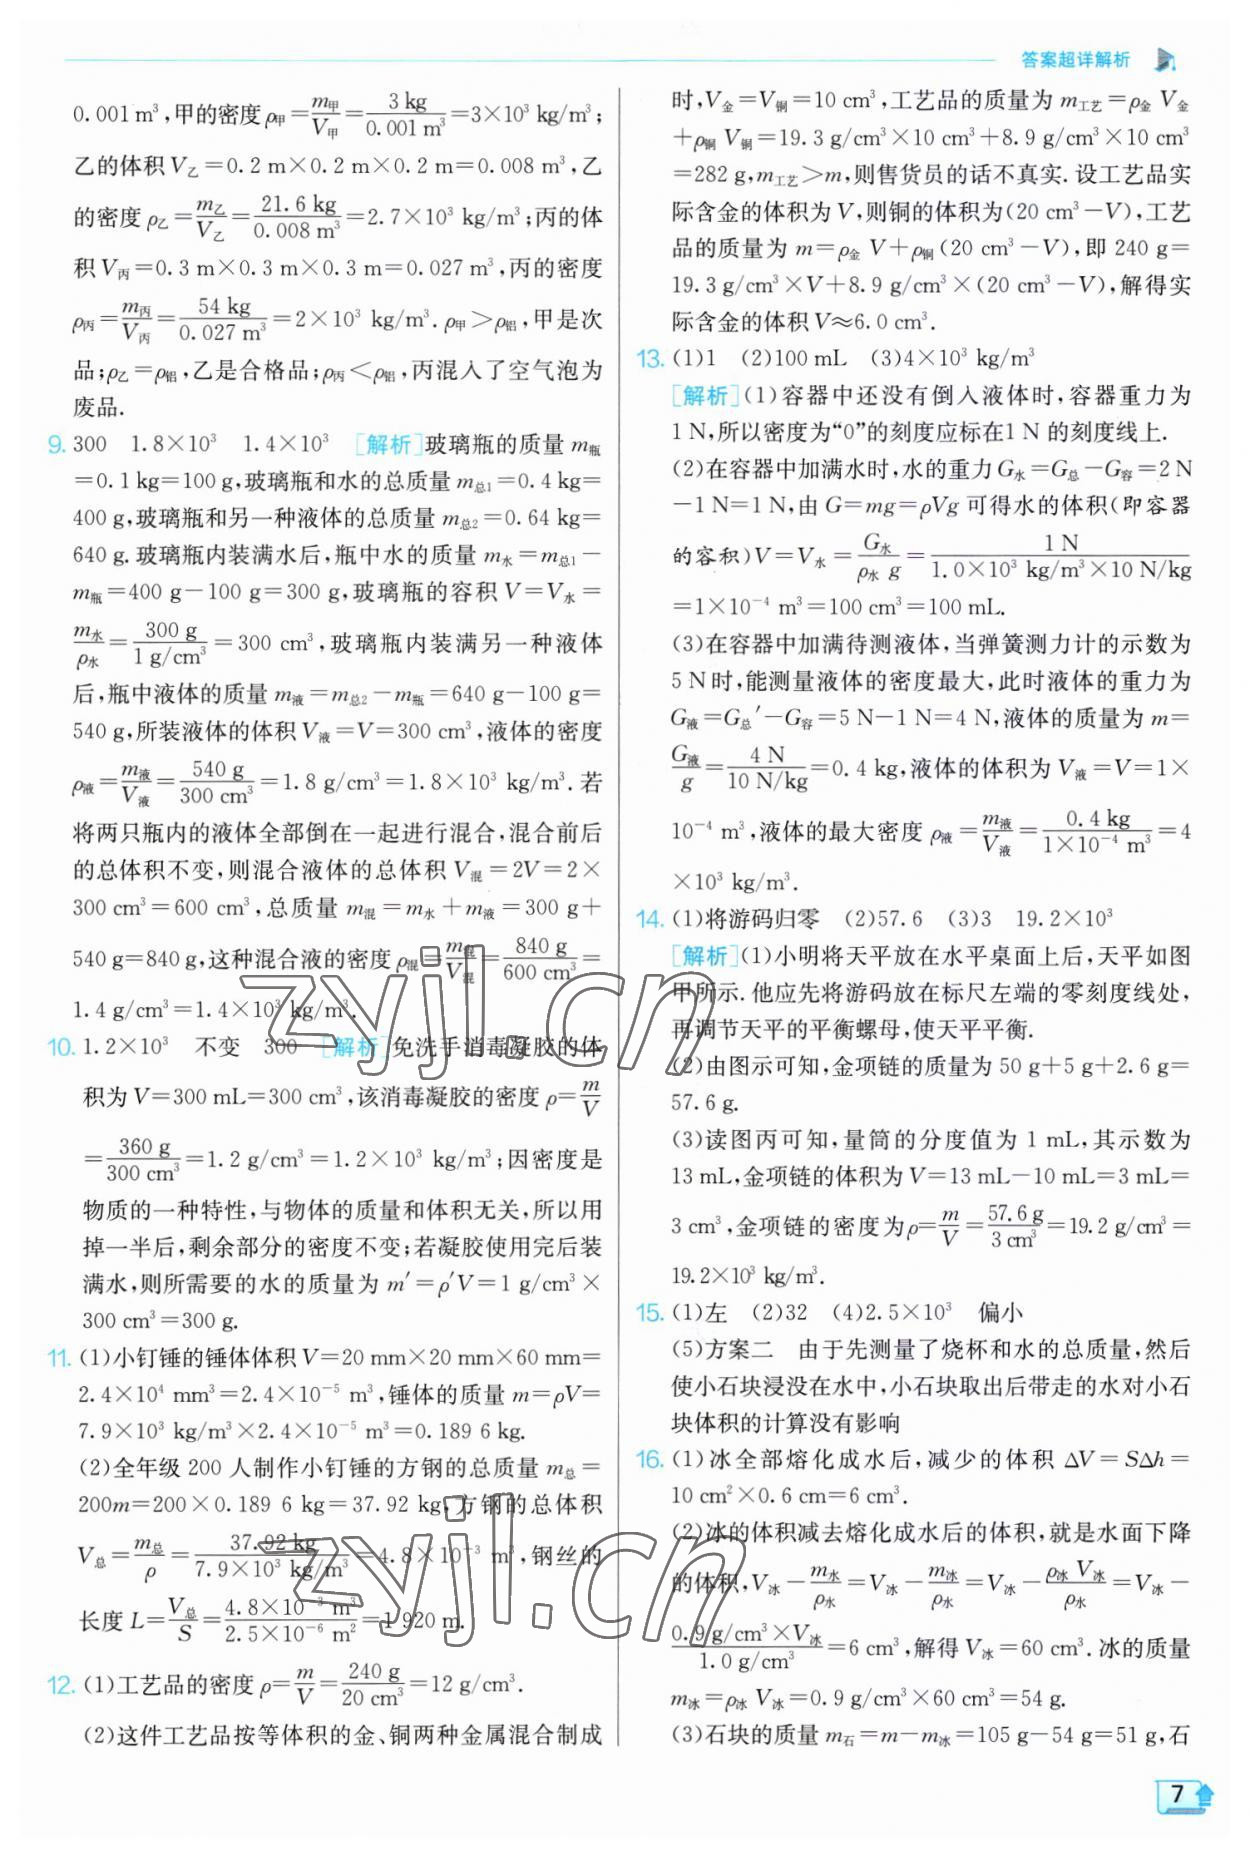 答案超详解析
0.001 m³,甲的密度ρ甲=m甲/V甲=3 kg/0.001 m³=3×10³ kg/m³;
乙的体积V乙=0.2 m×0.2 m×0.2 m=0.008 m³,乙
的密度ρ乙=m乙/V乙=21.6 kg/0.008 m³=2.7×10³ kg/m³;丙的体
积V丙=0.3 m×0.3 m×0.3 m=0.027 m³,丙的密度
ρ丙=m丙/V丙=54 kg/0.027 m³=2×10³ kg/m³.ρ甲>ρ铝,甲是次
品;ρ乙=ρ铝,乙是合格品;ρ丙<ρ铝,丙混入了空气泡为
废品.
9. 300 1.8×10³ 1.4×10³ [解析]玻璃瓶的质量m瓶
=0.1 kg=100 g,玻璃瓶和水的总质量m总1=0.4 kg=
400 g,玻璃瓶和另一种液体的总质量m总2=0.64 kg=
640 g.玻璃瓶内装满水后,瓶中水的质量m水=m总1-
m瓶=400 g-100 g=300 g,玻璃瓶的容积V=V水=
m水/ρ水=300 g/1 g/cm³=300 cm³,玻璃瓶内装满另一种液体
后,瓶中液体的质量m液=m总2-m瓶=640 g-100 g=
540 g,所装液体的体积V液=V=300 cm³,液体的密度
ρ液=m液/V液=540 g/300 cm³=1.8 g/cm³=1.8×10³ kg/m³.若
将两只瓶内的液体全部倒在一起进行混合,混合前后
的总体积不变,则混合液体的总体积V混=2V=2×
300 cm³=600 cm³,总质量m混=m水+m液=300 g+
540 g=840 g,这种混合液的密度ρ混=m混/V混=840 g/600 cm³=
1.4 g/cm³=1.4×10³ kg/m³.
10. 1.2×10³ 不变 300 [解析]免洗手消毒凝胶的体
积为V=300 mL=300 cm³,该消毒凝胶的密度ρ=m/V
=360 g/300 cm³=1.2 g/cm³=1.2×10³ kg/m³;因密度是
物质的一种特性,与物体的质量和体积无关,所以用
掉一半后,剩余部分的密度不变;若凝胶使用完后装
满水,则所需要的水的质量为m′=ρ′V=1 g/cm³×
300 cm³=300 g.
11. (1)小钉锤的锤体体积V=20 mm×20 mm×60 mm=
2.4×10⁴ mm³=2.4×10⁻⁵ m³,锤体的质量m=ρV=
7.9×10³ kg/m³×2.4×10⁻⁵ m³=0.189 6 kg.
(2)全年级200人制作小钉锤的方钢的总质量m总=
200m=200×0.189 6 kg=37.92 kg,方钢的总体积
V总=m总/ρ=37.92 kg/7.9×10³ kg/m³=4.8×10⁻³ m³,钢丝的
长度L=V总/S=4.8×10⁻³ m³/2.5×10⁻⁶ m²=1 920 m.
12. (1)工艺品的密度ρ=m/V=240 g/20 cm³=12 g/cm³.
(2)这件工艺品按等体积的金、铜两种金属混合制成
时,V金=V铜=10 cm³,工艺品的质量为m工艺=ρ金V金
+ρ铜V铜=19.3 g/cm³×10 cm³+8.9 g/cm³×10 cm³
=282 g,m工艺>m,则售货员的话不真实.设工艺品实
际含金的体积为V,则铜的体积为(20 cm³-V),工艺
品的质量为m=ρ金V+ρ铜(20 cm³-V),即240 g=
19.3 g/cm³×V+8.9 g/cm³×(20 cm³-V),解得实
际含金的体积V≈6.0 cm³.
13. (1)1 (2)100 mL (3)4×10³ kg/m³
[解析](1)容器中还没有倒入液体时,容器重力为
1 N,所以密度为“0”的刻度应标在1 N的刻度线上.
(2)在容器中加满水时,水的重力G水=G总-G容=2 N
-1 N=1 N,由G=mg=ρVg可得水的体积(即容器
的容积)V=V水=G水/ρ水g=1 N/1.0×10³ kg/m³×10 N/kg
=1×10⁻⁴ m³=100 cm³=100 mL.
(3)在容器中加满待测液体,当弹簧测力计的示数为
5 N时,能测量液体的密度最大,此时液体的重力为
G液=G总′-G容=5 N-1 N=4 N,液体的质量为m=
G液/g=4 N/10 N/kg=0.4 kg,液体的体积为V液=V=1×
10⁻⁴ m³,液体的最大密度ρ液=m液/V液=0.4 kg/1×10⁻⁴ m³=4
×10³ kg/m³.
14. (1)将游码归零 (2)57.6 (3)3 19.2×10³
[解析](1)小明将天平放在水平桌面上后,天平如图
甲所示.他应先将游码放在标尺左端的零刻度线处,
再调节天平的平衡螺母,使天平平衡.
(2)由图示可知,金项链的质量为50 g+5 g+2.6 g=
57.6 g.
(3)读图丙可知,量筒的分度值为1 mL,其示数为
13 mL,金项链的体积为V=13 mL-10 mL=3 mL=
3 cm³,金项链的密度为ρ=m/V=57.6 g/3 cm³=19.2 g/cm³=
19.2×10³ kg/m³.
15. (1)左 (2)32 (4)2.5×10³ 偏小
(5)方案二 由于先测量了烧杯和水的总质量,然后
使小石块浸没在水中,小石块取出后带走的水对小石
块体积的计算没有影响
16. (1)冰全部熔化成水后,减少的体积ΔV=SΔh=
10 cm²×0.6 cm=6 cm³.
(2)冰的体积减去熔化成水后的体积,就是水面下降
的体积,V冰-m水/ρ水=V冰-m冰/ρ水=V冰-ρ冰V冰/ρ水=V冰-
0.9 g/cm³×V冰/1.0 g/cm³=6 cm³,解得V冰=60 cm³.冰的质量
m冰=ρ冰V冰=0.9 g/cm³×60 cm³=54 g.
(3)石块的质量m石=m-m冰=105 g-54 g=51 g,石
7
zyjl.cn
zyjl.cn